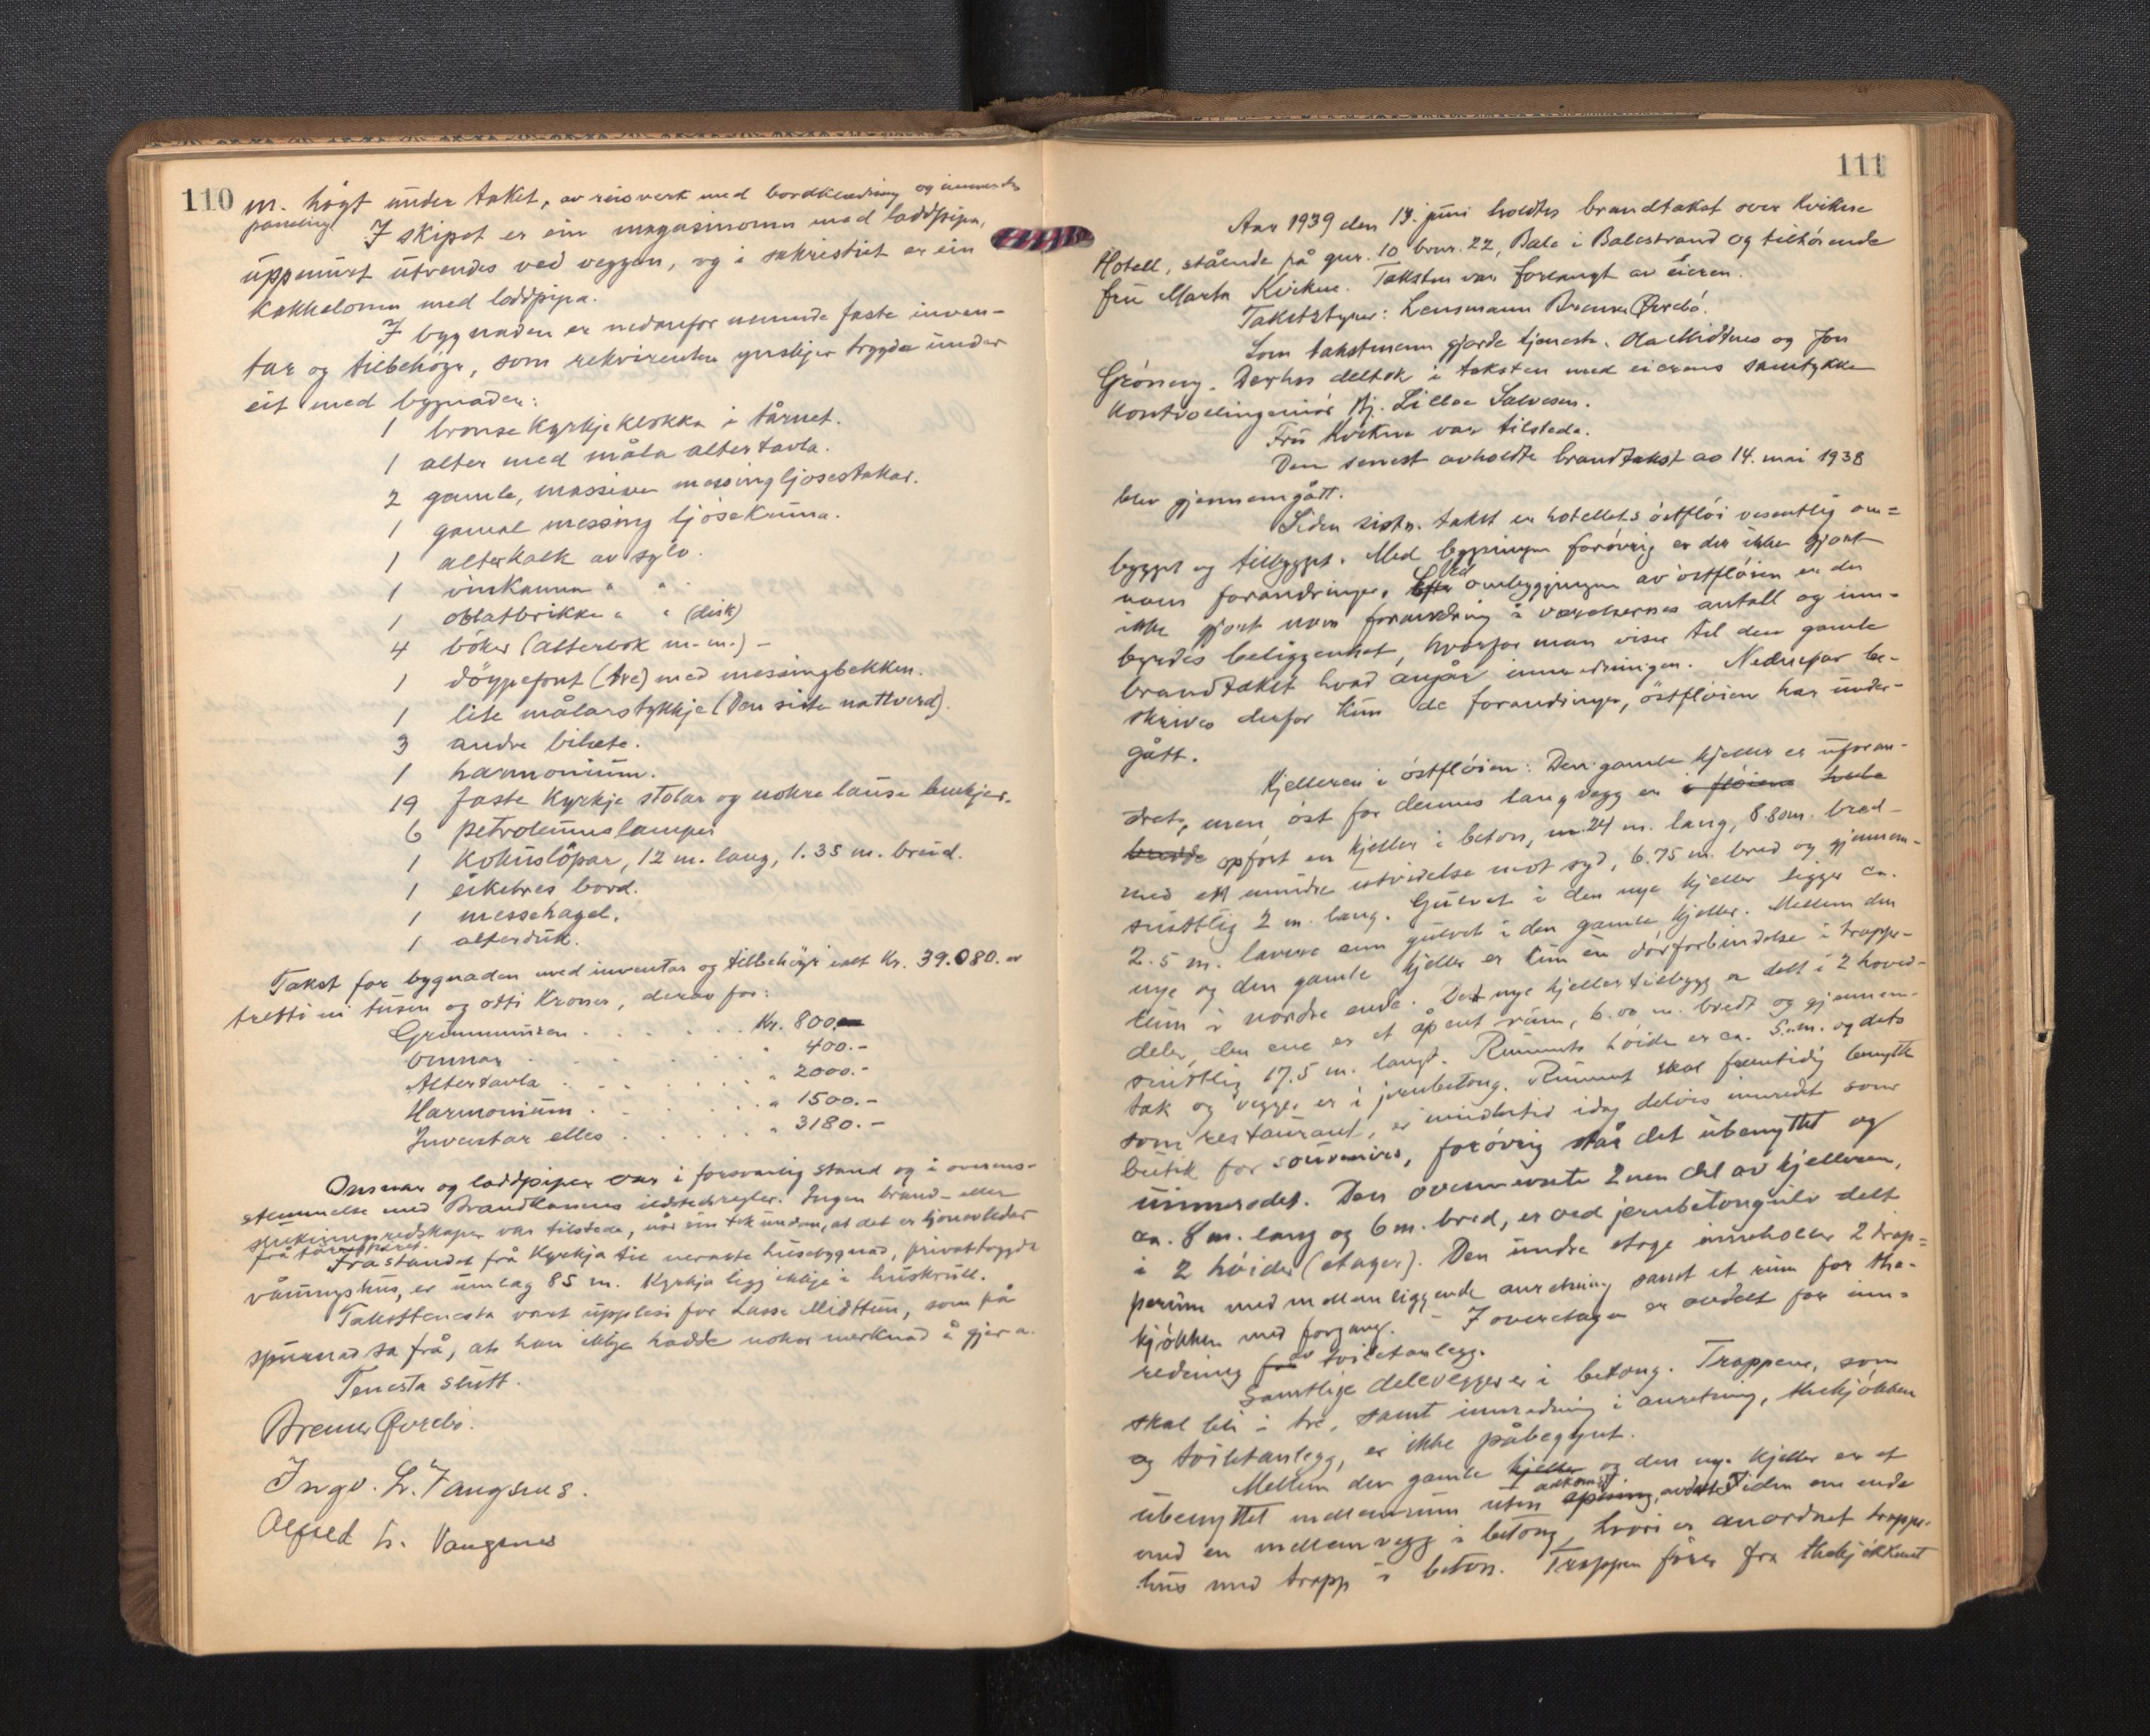 110
m. högt under taket, av reisverk med bordklædning og innvendes
paneling. I skipet er ein magasinomn med loddpipa,
uppmurt utvendes ved veggen, og i sakristiet er ein
kakkelomn med loddpipa.
I bygnaden er nedanfor nemnde faste inven-
tar og tilbehöyr, som rekvirenten ynskjer trygda under
eit med bygnaden:
1 bronse kyrkjeklokka i tårnet.
1 alter med måla altertavla.
2 gamle, massive messingljosestakar.
1 gamal messing ljosekruna.
1 alterkalk av sylv.
1 vinkanna " "
1 oblatbrikke " " (disk)
4 böker (alterbok m.m.) -
1 döypefont (tre) med messingbekken.
1 lite målarstykkje (Den siste nattverd).
3 andre bilete.
1 harmonium.
19 faste kyrkjestolar og nokre lause benkjer.
6 petroleumslamper
1 kokuslöpar, 12 m. lang, 1.35 m. breid.
1 eiketres bord.
1 messehagel.
1 alterduk.
Takst for bygnaden med inventar og tilbehöyr ialt kr. 39.080. er
tretti ni tusen og otti kroner, derav for:
Grunnmuren . . . . . . kr. 800.-
Omnar . . . . . . " 400.-
Altertavla . . . . . . " 2000.-
Harmonium . . . . . . " 1500.-
Inventar elles . . . . . " 3180.-
Omnar og loddpiper var i forsvarlig stand og i overens-
stemmelse med Brandkassens ildstedsregler. Ingen brand- eller
slukningsredskaper var tilstede, når ein tek undan, at det er ljonavleidar
frå tårnspiret.
Frastandet frå kyrkja til nermaste husebygnad, privattrygda
våningshus, er umlag 85 m. Kyrkja ligg ikkje i huskrull.
Takstteneста vart upplesi for Lasse Midttun, som på
spurnad sa frå, at han ikkje hadde nokor merknad å gjera.
Tenesta slutt.
Bremer Øvrebö.
Ingv. L. Vangsnes.
Alfred L. Vangsnes
111
Aar 1939 den 13. juni holdtes brandtakst over Kviknes
Hotell, stående på gnr. 10 brnr. 22, Bale i Balestrand og tilhörende
fru Marta Kvikne. Taksten var forlangt av eieren.
Takststyrer: Lensmann Bremer Øvrebö.
Som takstmenn gjorde tjeneste: Ola Midtnes og Jon
Gröneng. Derhos deltok i taksten med eierens samtykke
kontrollingeniör Hj. Lilloe Salvesen.
Fru Kvikne var tilstede.
Den senest avholdte brandtakst av 14. mai 1938
blev gjennemgått.
Siden siste takst er hotellets östflöi vesentlig om-
bygget og tilbygget. Med bygningen forövrig er der ikke gjort
noen forandringer. Ved ombyggingen av östflöien er der
ikke gjort noen forandring i værelsernes antall og inn-
byrdes beliggenhet, hvorfor man viser til den gamle
brandtakst hvad angår innredningen. Nedenfor be-
skrives derfor kun de forandringer, östflöien har under-
gått.
Kjelleren i östflöien: Den gamle kjeller er uforan-
dret, men öst for dennes langvegg er i flöiens hele
bredde opfört en kjeller i beton, 24 m. lang, 8.80 m. bred -
med ett mindre utvidelse mot syd, 6.75 m. bred og gjennem-
snittlig 2 m. lang. Gulvet i den nye kjeller ligger ca.
2.5 m. lavere enn gulvet i den gamle kjeller. Mellem den
nye og den gamle kjeller er kun en dörforbindelse i trappe-
rum i nordre ende. Det nye kjellertilbygg er delt i 2 hoved-
deler, den ene er et åpent rum, 6.00 m. bredt og gjennem-
snittlig 17.5 m. langt. Rummets höide er ca. 5. m. og dets
tak og vegger er i jernbetong. Rummet skal fremtidig benyttes
som restaurant, er imidlertid idag delvis innredt som
butik for souvenirs, forövrig står det ubenyttet og
uinnredet. Den ovennevnte 2nen del av kjelleren,
ca. 8 m. lang og 6 m. bred, er ved jernbetongulv delt
i 2 höider (etager). Den undre etage inneholder 2 trap-
perum med mellemliggende anretning samt et rum for the-
kjökken med forgang. - I overetagen er avdelt for inn-
redning av toiletanlegg.
Samtlige delevegger er i betong. Trappene, som
skal bli i tre, samt innredning i anretning, thekjökken
og toiletanlegg, er ikke påbegynt.
Mellem den gamle kjeller og den nye kjeller er et
ubenyttet mellemrum uten adkomst, avdelt i den ene ende
med en mellemvegg i betong, hvori er anordnet trappe-
hus med trapp i beton. Trappen förer fra thekjökkenet